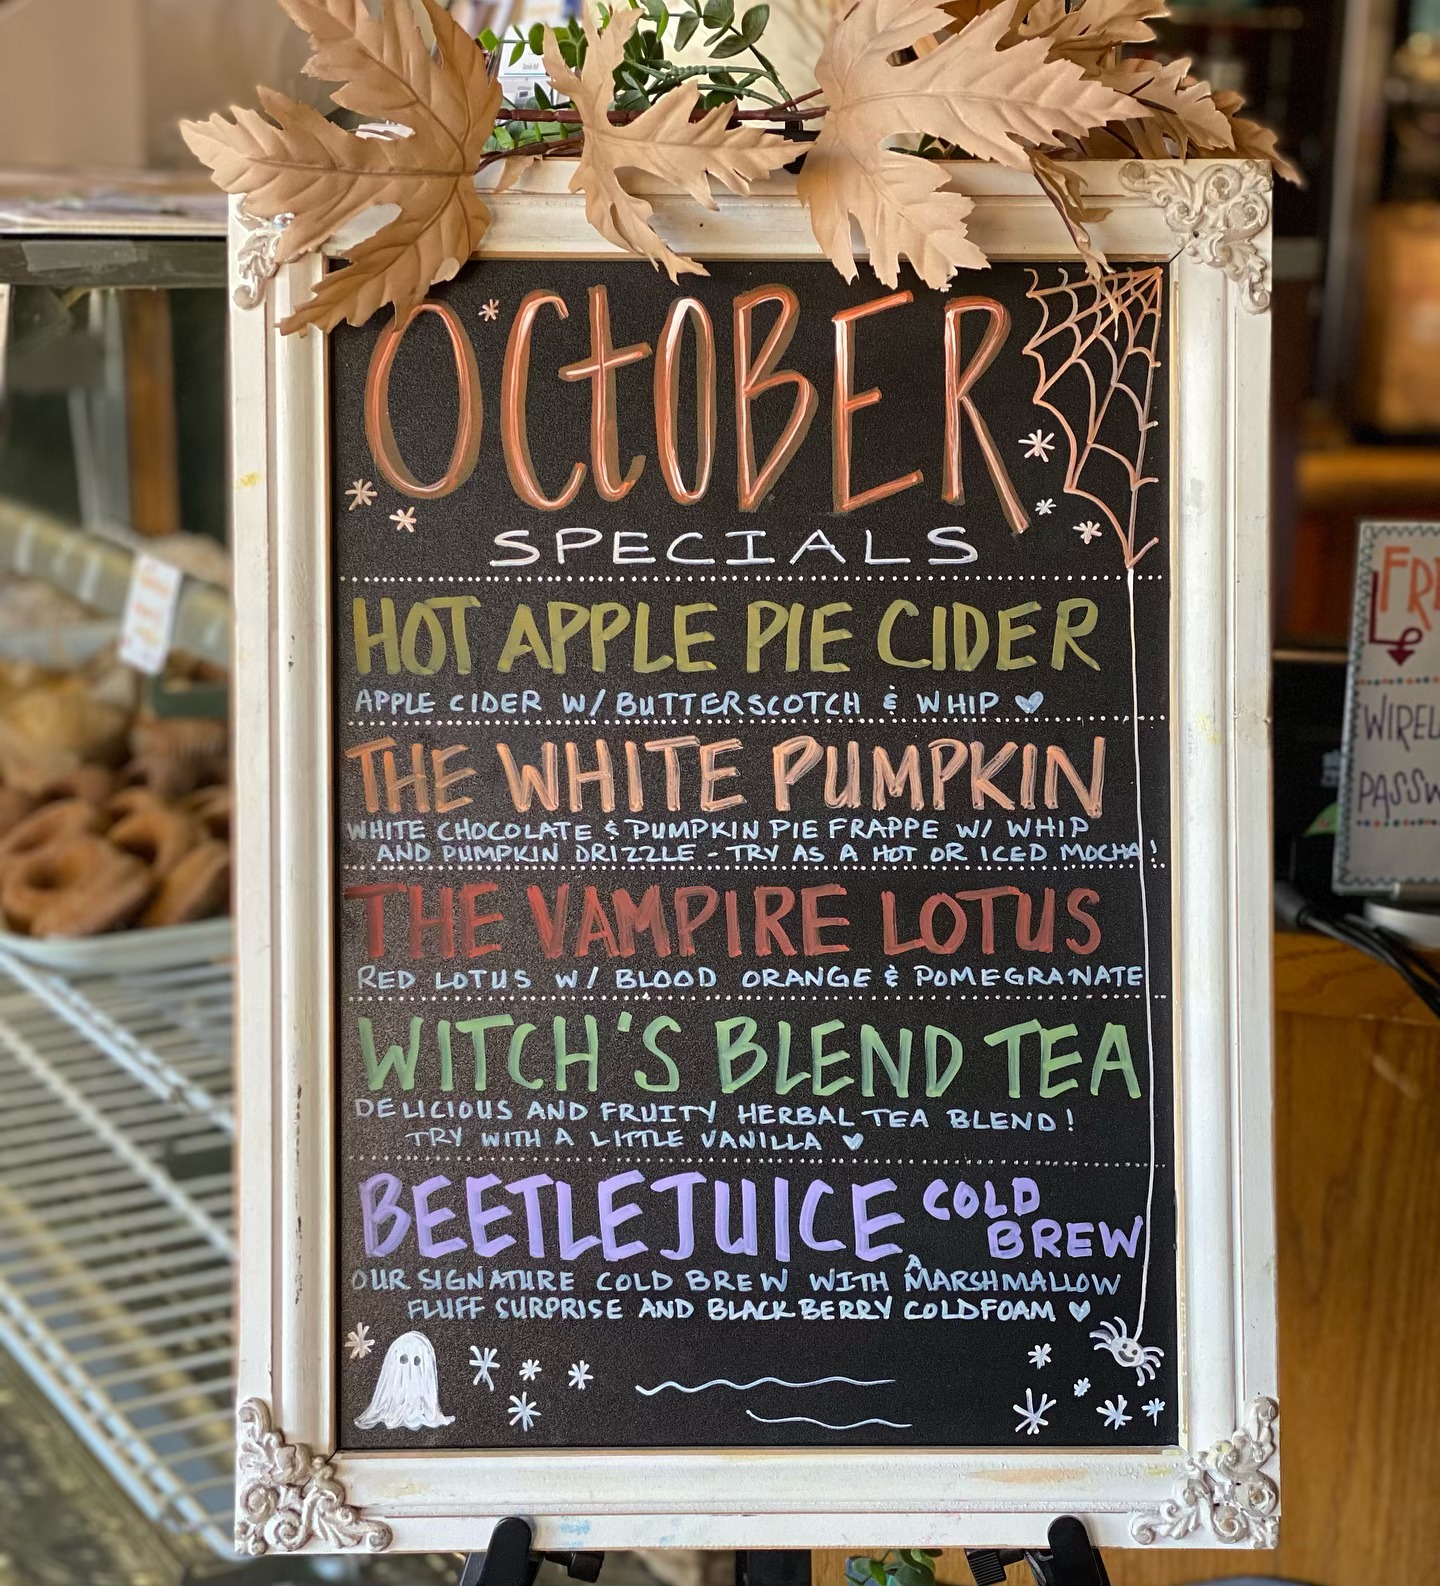 OCTOBER
SPECIALS
HOT APPLE PIE CIDER
APPLE CIDER W/ BUTTERSCOTCH & WHIP ♥
THE WHITE PUMPKIN
WHITE CHOCOLATE & PUMPKIN PIE FRAPPE W/ WHIP
AND PUMPKIN DRIZZLE - TRY AS A HOT OR ICED MOCHA!
THE VAMPIRE LOTUS
RED LOTUS W/ BLOOD ORANGE & POMEGRANATE
WITCH'S BLEND TEA
DELICIOUS AND FRUITY HERBAL TEA BLEND!
TRY WITH A LITTLE VANILLA ♥
BEETLEJUICE COLD BREW
OUR SIGNATURE COLD BREW WITH A MARSHMALLOW
FLUFF SURPRISE AND BLACKBERRY COLDFOAM ♥